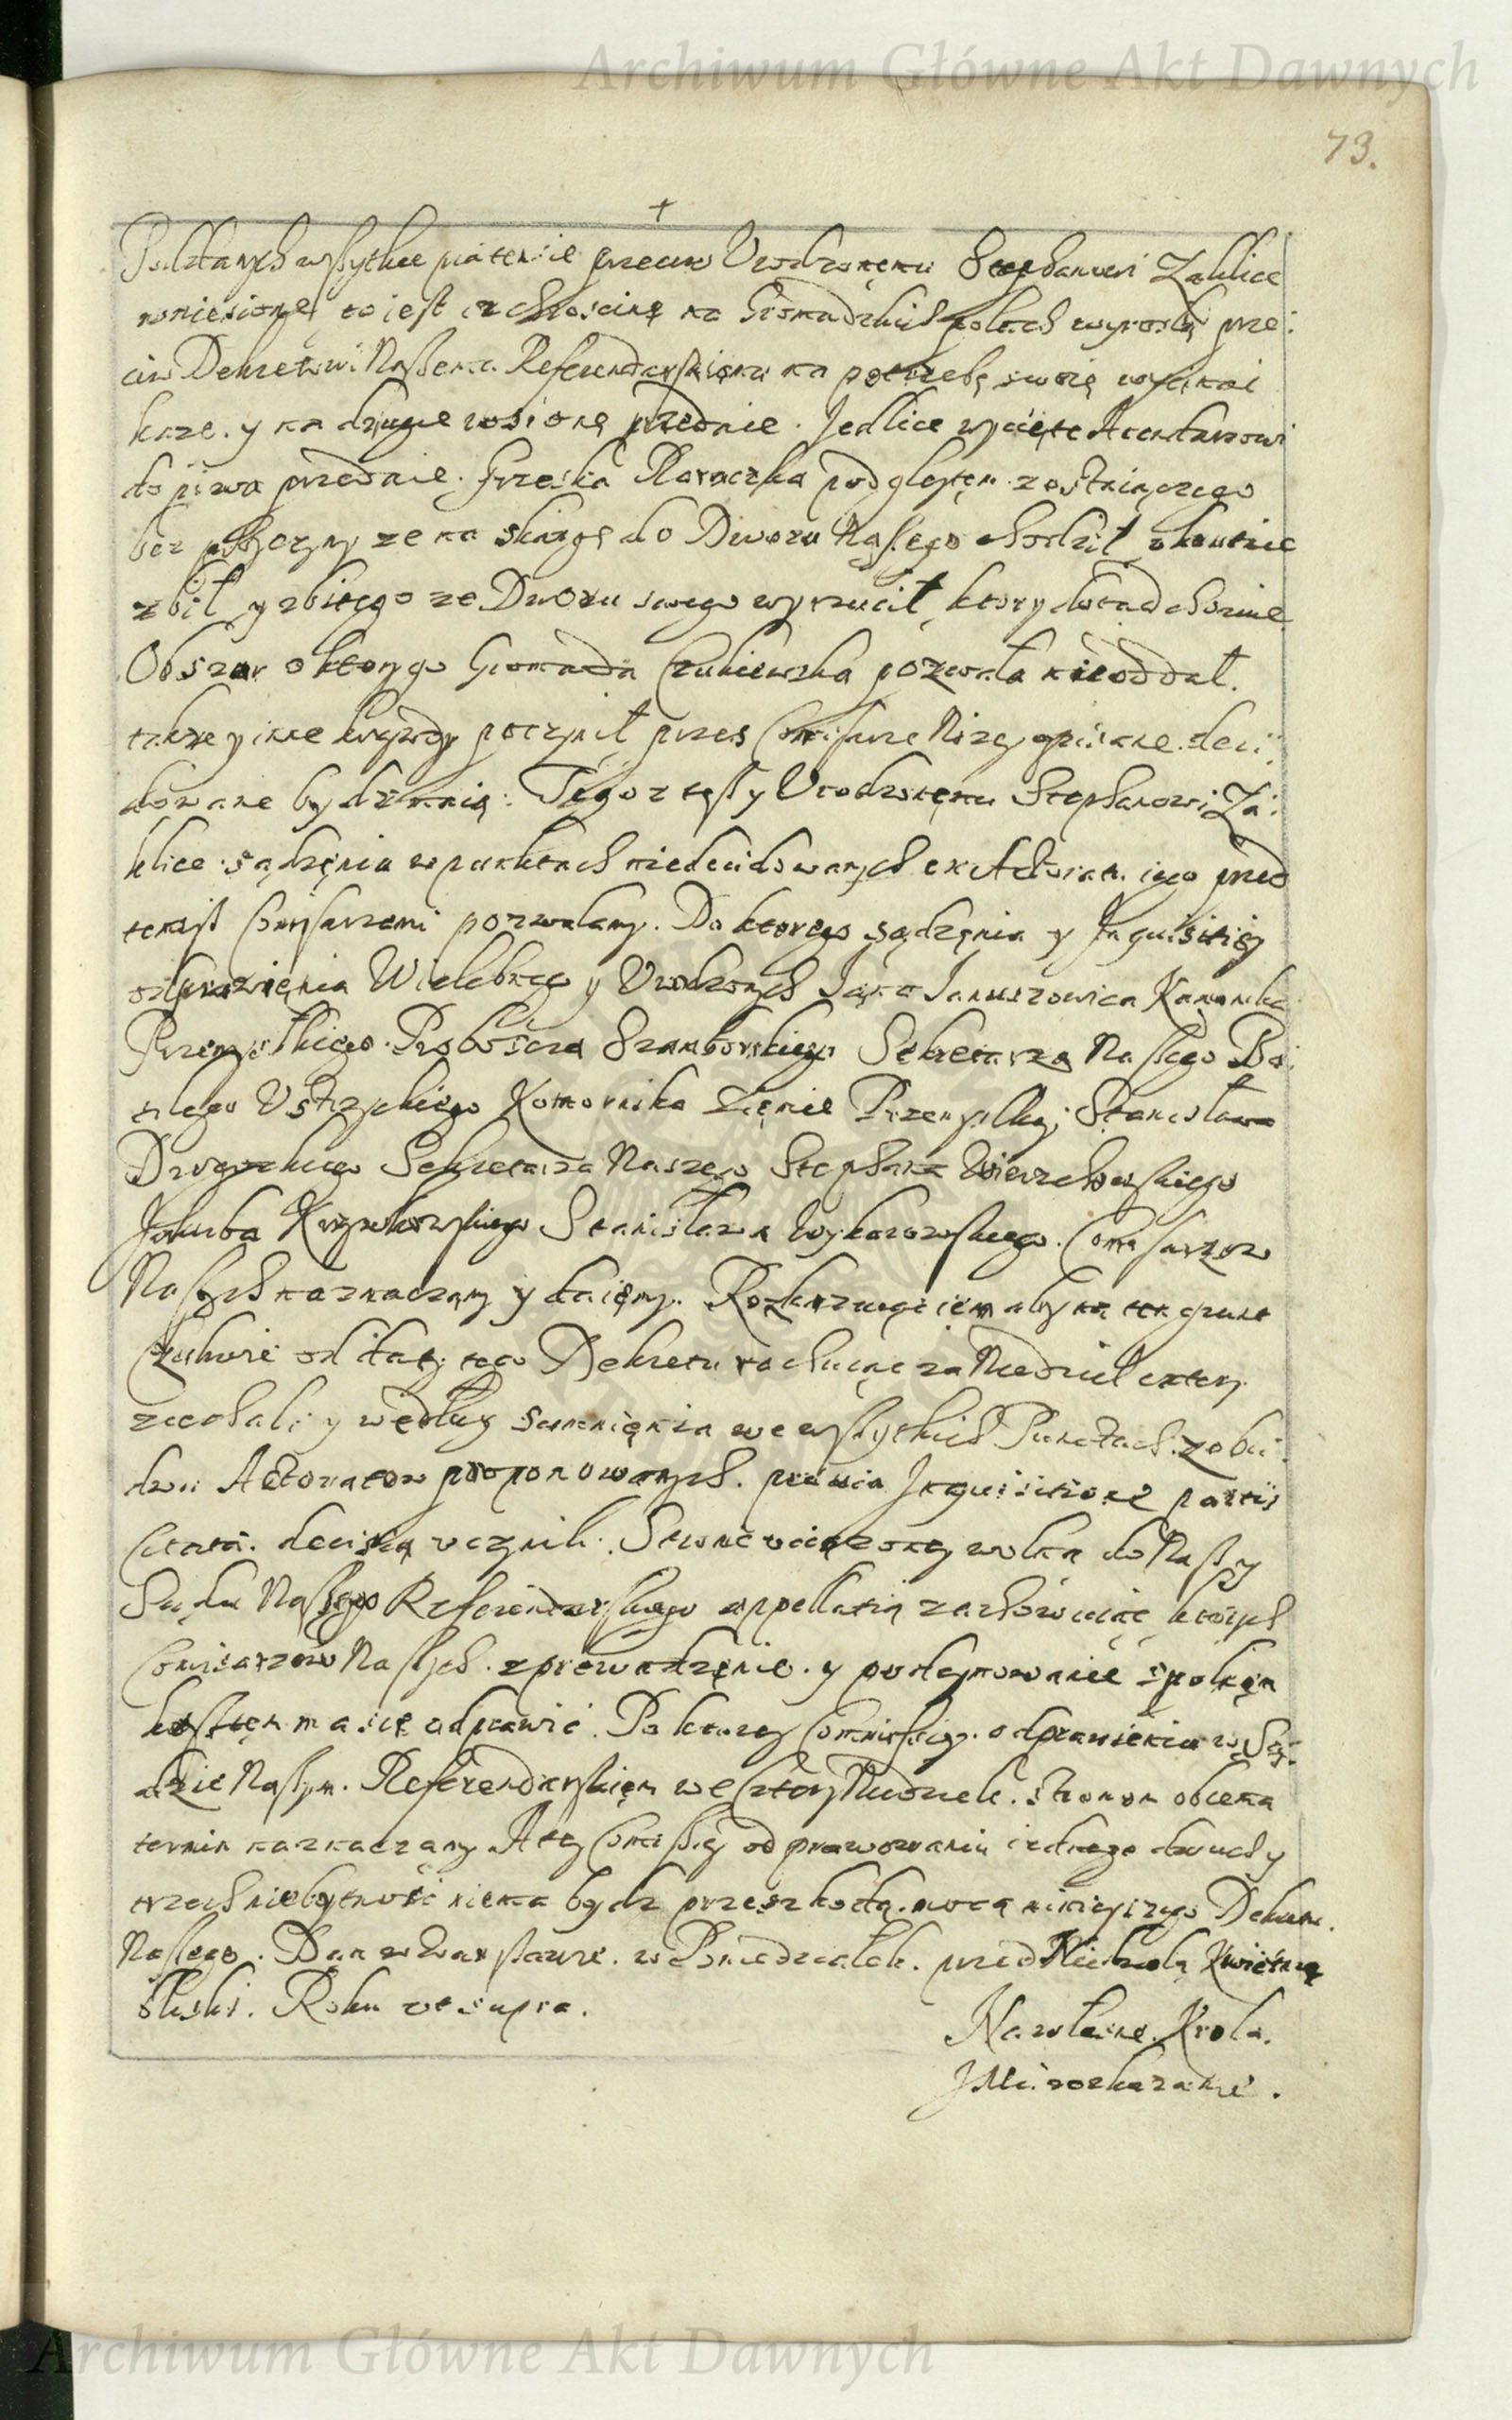 Archiwum Główne Akt Dawnych
73.
+
Poddanych wszytkie praetensie przeciw Urodzonęmu Stephanowi Zaklice
wniesione, to iest iz chrościnę na Gromadzkich polach wyrosłą prze:
ciw Dekretowi Naszemu Referendarskięmu na potrzebę swoię wycinać
kaze. y na drugie wsi onę przedaie. Jedlice wycięte Arendarzowi
do piwa przedaie. Hreska Playaczka pod gleytęm zostaiącego
bez przyczyny ze na skargę do Dworu Naszego chodził okrutnie
zbił y zbitego ze Dworu swego wyrzucił, ktory dotąd choruie
Obszar o ktory go Gromada Czukiewska pozwała nie oddał.
takze y inne krzywdy poczynił przez Comissarze Nizey opisane deci:
dowane bydz maią: Tegoz tesz y Urodzonęmu Stephanowi Za:
klice sądzęnia w punktach niedecidowanych ex Actoratu iego przed
temisz Comissarzami pozwalamy. Do ktorego sądzęnia y Inquisitiey
odprawięnia Wielebnego y Urodzonych Jana Januszowica Kanonika
Przemyskiego Proboscza Szamborskiego Sekretarza Naszego
Ustrzyckiego Komornika Ziemie Przemyslkiey Stanisława
Sekretarza Naszego Stephana Wierzchowskiego
Jakuba Stanisława Comissarzow
Naszych naznaczamy y daięmy. Rozkazuiąc iem aby na ten grunt
Czukwie od daty tego Dekretu rachuiąc za Niedziel cztery
ziechali y według sumnięnia we wszytkich Punctach z obu
dwu Actoratow proponowanych. praevia Inquisitione partis
Citatae. decisią uczynili. Stronie uciązoney wolną do Naszey
Sądu Naszego Referendarskiego appellatią zachowuiąc, ktorych
Comisarzow Naszych. zprowadzęnie. y podeymowanie spolnęm
kosztęm ma się odprawić. Po ktorey Commissiey. odprawieniu w Są:
dzie Naszym. Referendarskięm we cztery Niedziele. stronom obiema
termin naznaczamy A tey Comissiey odprawowaniu iednego dwuch y
trzech niebytność niema bydz przeszkodą. mocą ninieyszego Dekretu.
Naszego. Dan w Warszawie. w Poniedziałek. przed Niedzielą Kwietną
bliski. Roku ut supra.
Na własne. Krola.
JMci rozkazanie.
Archiwum Główne Akt Dawnych